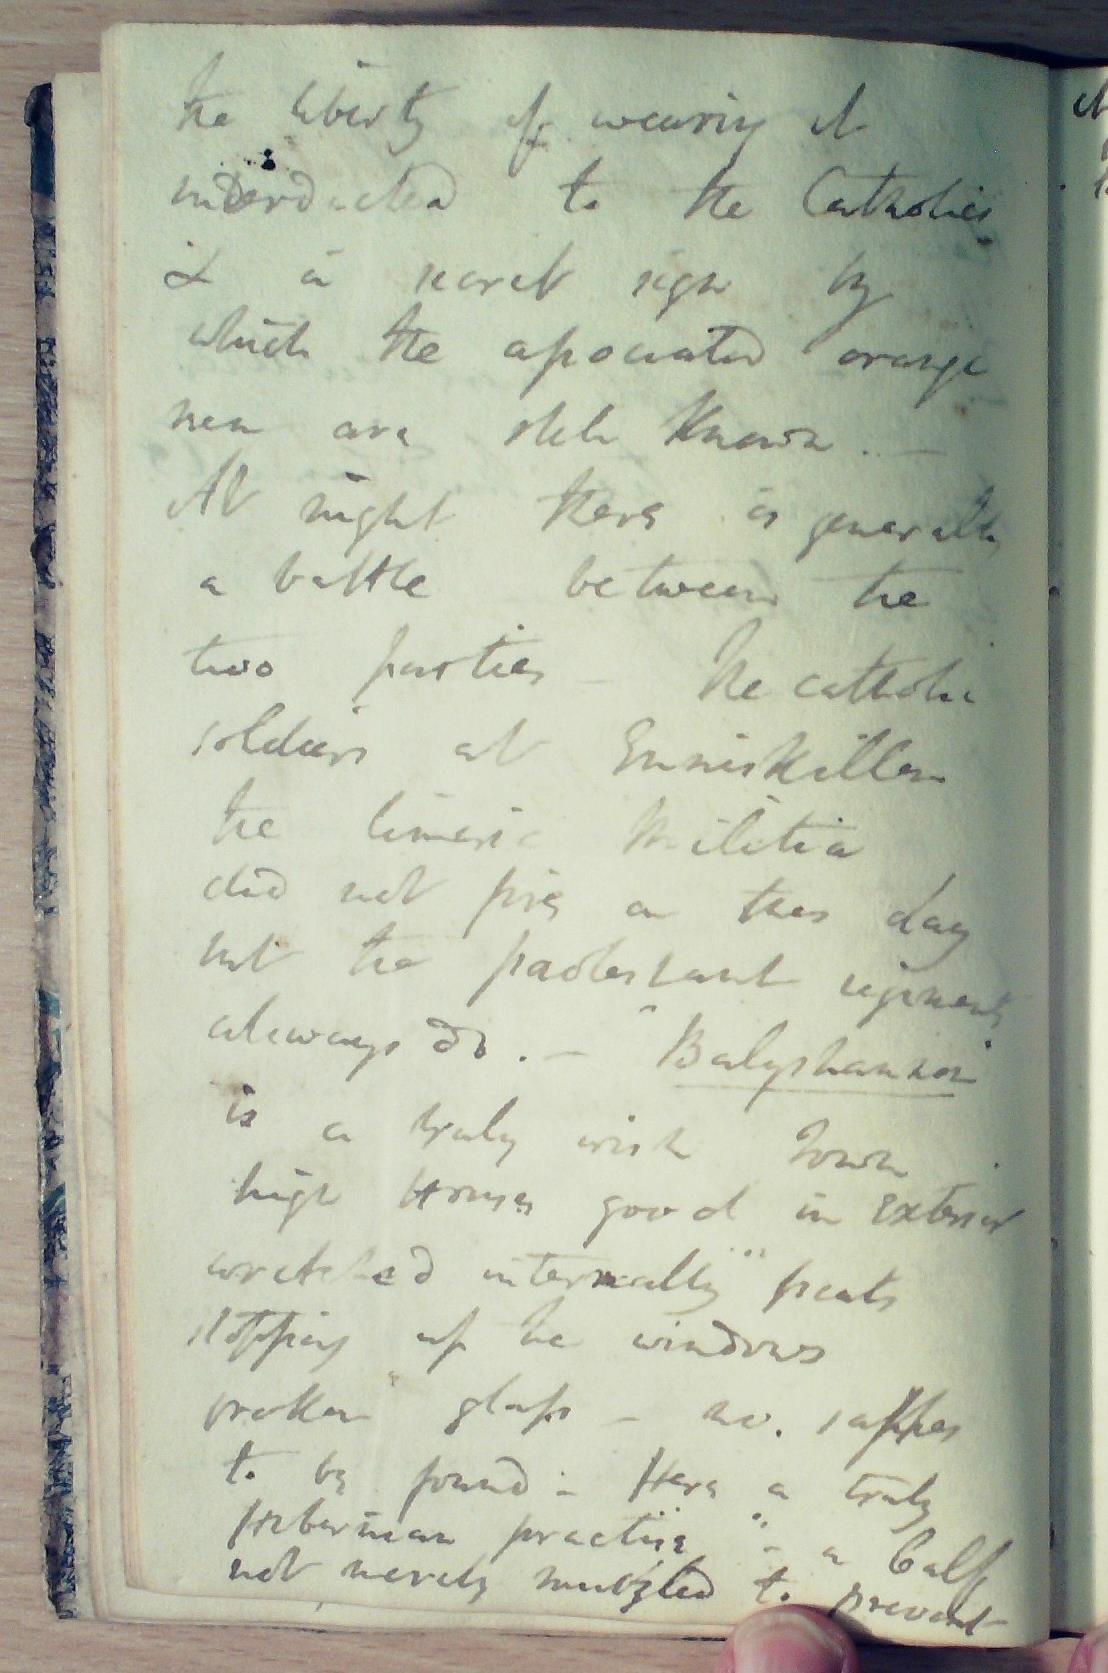 the liberty of wearing it
interdicted to the Catholics
& a secret sign by
which the associated orange
men are still known. —
At night there is generally
a battle between the
two parties — The catholic
soldiers at Enniskillen
the limeric Militia
did not fire on this day
but the protestant regiments
always do. — Balyshannon
is a truly irish Town
high Houses good in Exterior
wretched internally peats
stopping up the windows
broken glass — no. sashes
to be found — Here a truly
Hibernian practise — a Calf
not merely muzzled to prevent